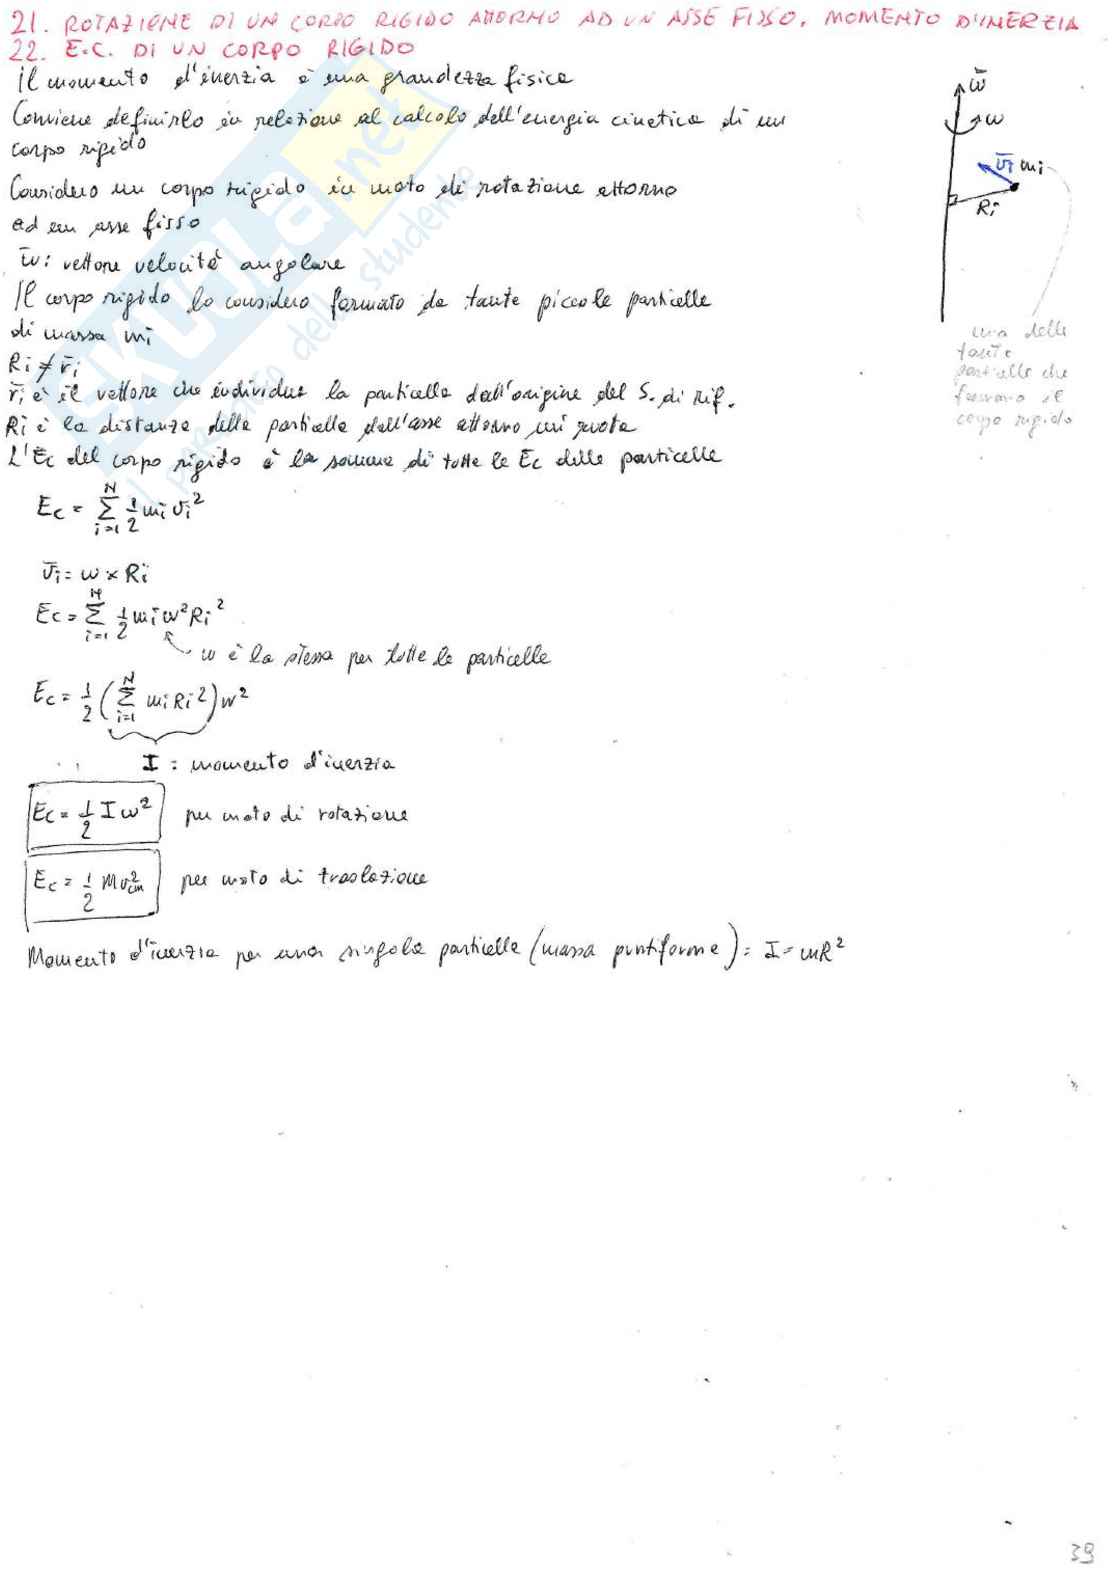 21. ROTAZIONE DI UN CORPO RIGIDO ATTORNO AD UN ASSE FISSO. MOMENTO D'INERZIA
22. E.C. DI UN CORPO RIGIDO
Il momento d'inerzia è una grandezza fisica
Conviene definirlo in relazione al calcolo dell'energia cinetica di un
corpo rigido
Considero un corpo rigido in moto di rotazione attorno
ad un asse fisso
w̄: vettore velocità angolare
Il corpo rigido lo considero formato da tante piccole particelle
di massa mi
Ri ≠ r̄i
r̄i è il vettore che individua la particella dall'origine del S. di rif.
Ri è la distanza della particella dall'asse attorno cui ruota
L'Ec del corpo rigido è la somma di tutte le Ec delle particelle
Ec = Σ_{i=1}^{N} 1/2 mi vi²
v̄i = w × Ri
Ec = Σ_{i=1}^{N} 1/2 mi w² Ri²
w è la stessa per tutte le particelle
Ec = 1/2 (Σ_{i=1}^{N} mi Ri²) w²
I : momento d'inerzia
Ec = 1/2 I w² per moto di rotazione
Ec = 1/2 M v²cm per moto di traslazione
Momento d'inerzia per una singola particella (massa puntiforme): I = mR²
w̄
w
v̄i mi
Ri
una delle
tante
particelle che
formano il
corpo rigido
SKUOLA.net
il paradiso dello studente
39